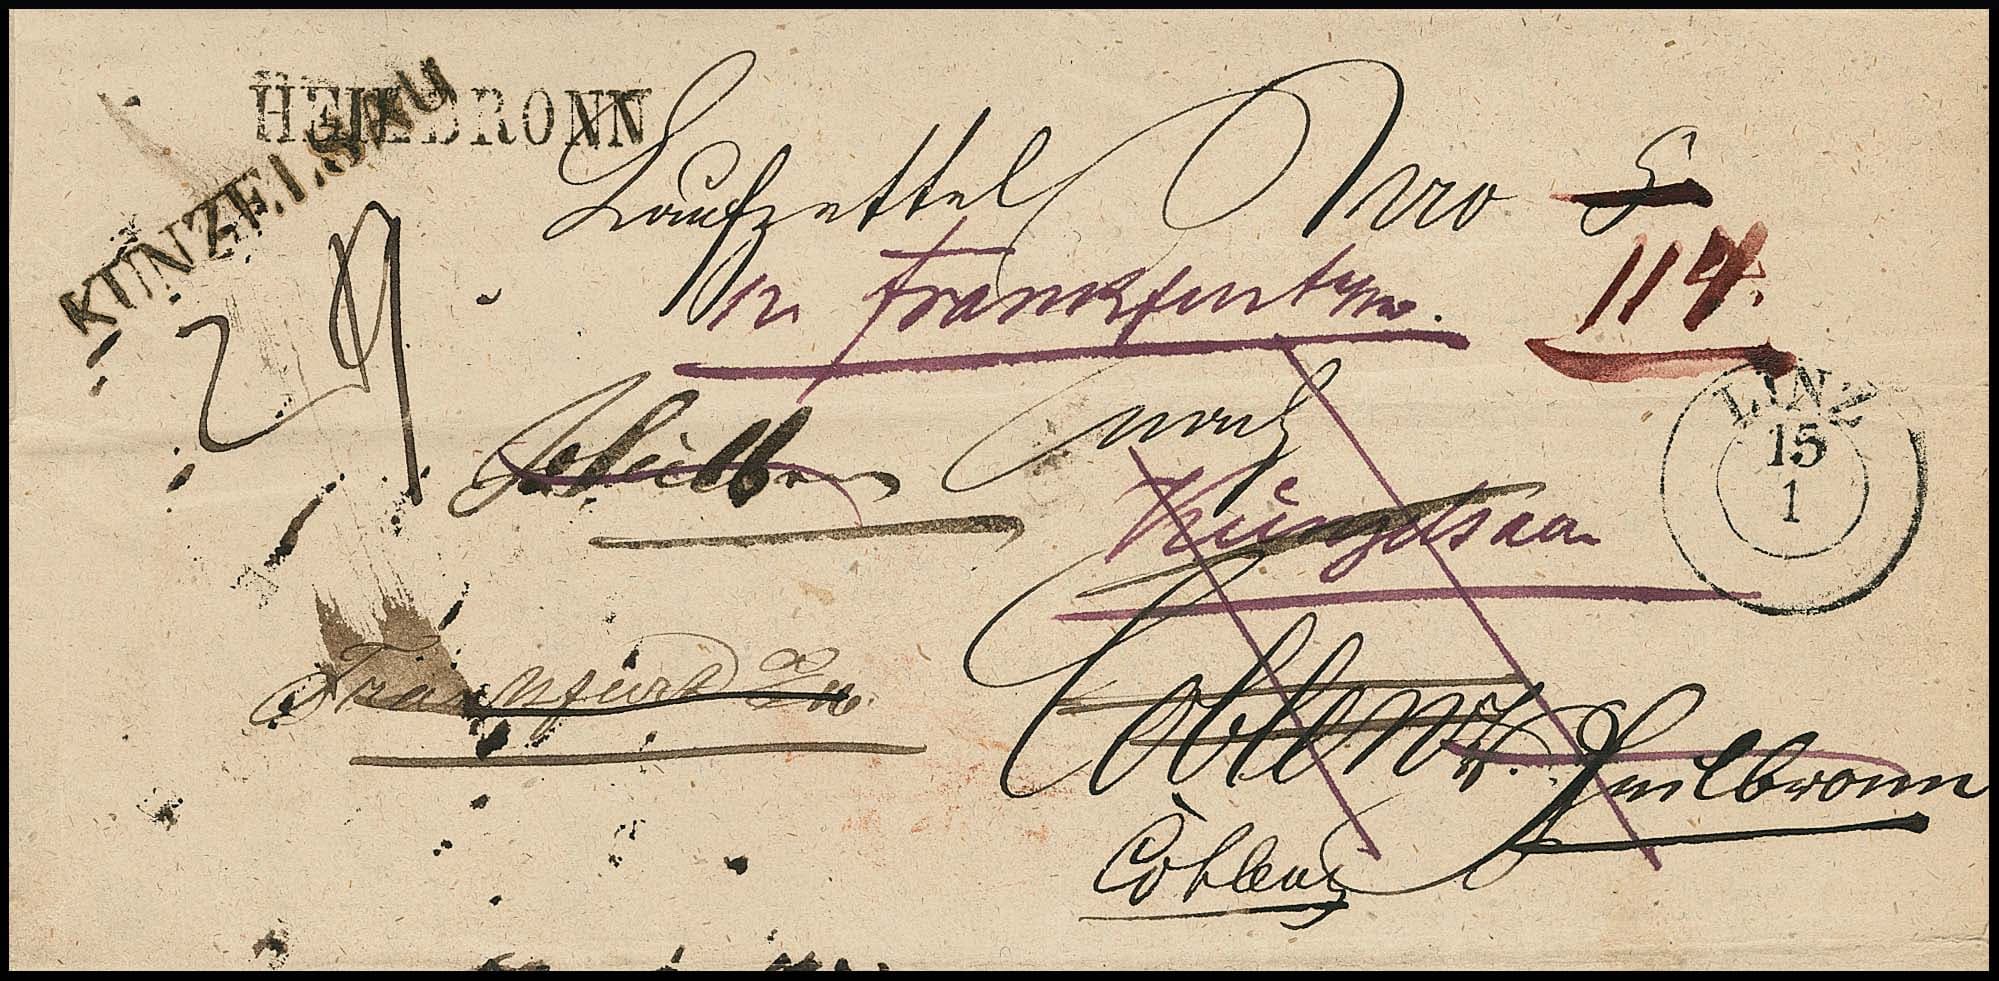 HEILBRONN
KÜNZELSAU
Laufzettel Nro 5
114.
in Frankfurt a/m.
nach
LINZ
15
1
Künzelsau
Frankfurt a/m.
Coblenz. Heilbronn
Coblenz